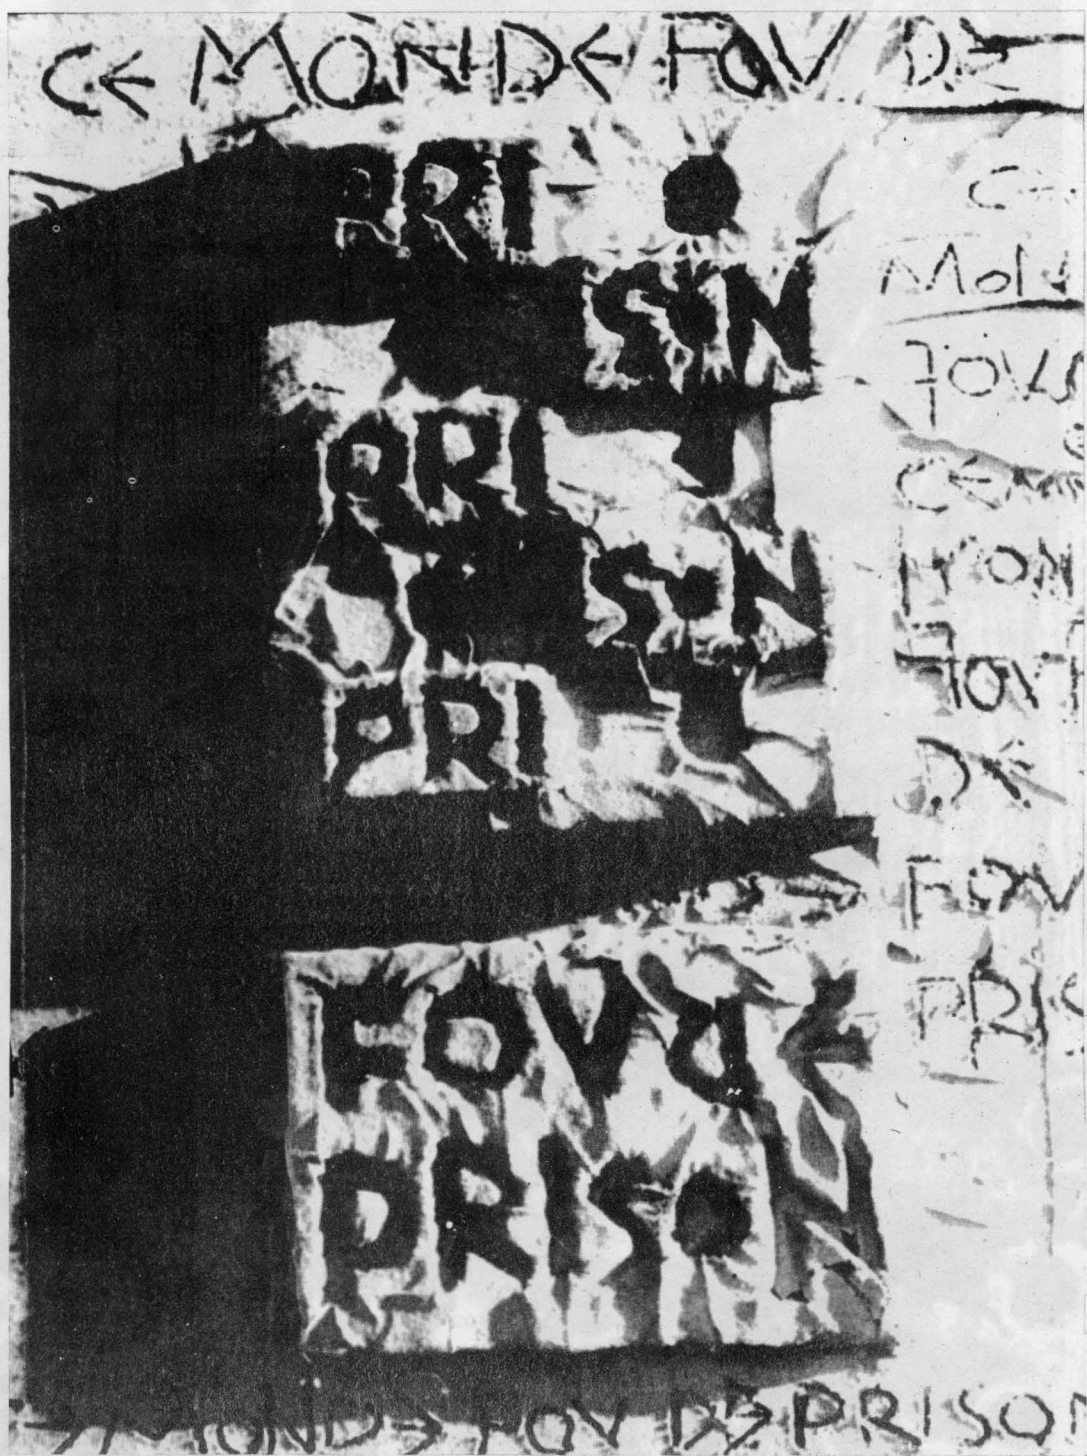 CE MONDE FOV DE
PRI
SON
PRI
SON
PRI
FOV DE
PRISON
CE
MON
FOV
CE
MON
FOV
DE
FOV
PRIS
MONDE FOV DE PRISON